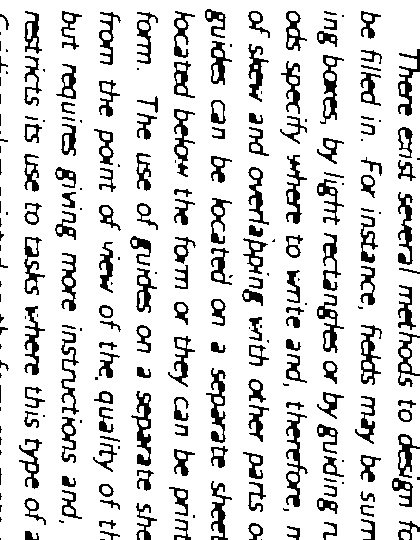 There exist several methods to design fo
be filled in. For instance, fields may be sur
ing boxes, by light rectangles or by guiding r
ods specify where to write and, therefore, m
of skew and overlapping with other parts o
guides can be located on a separate sheet
located below the form or they can be print
form. The use of guides on a separate she
from the point of view of the quality of th
but requires giving more instructions and,
restricts its use to tasks where this type of a